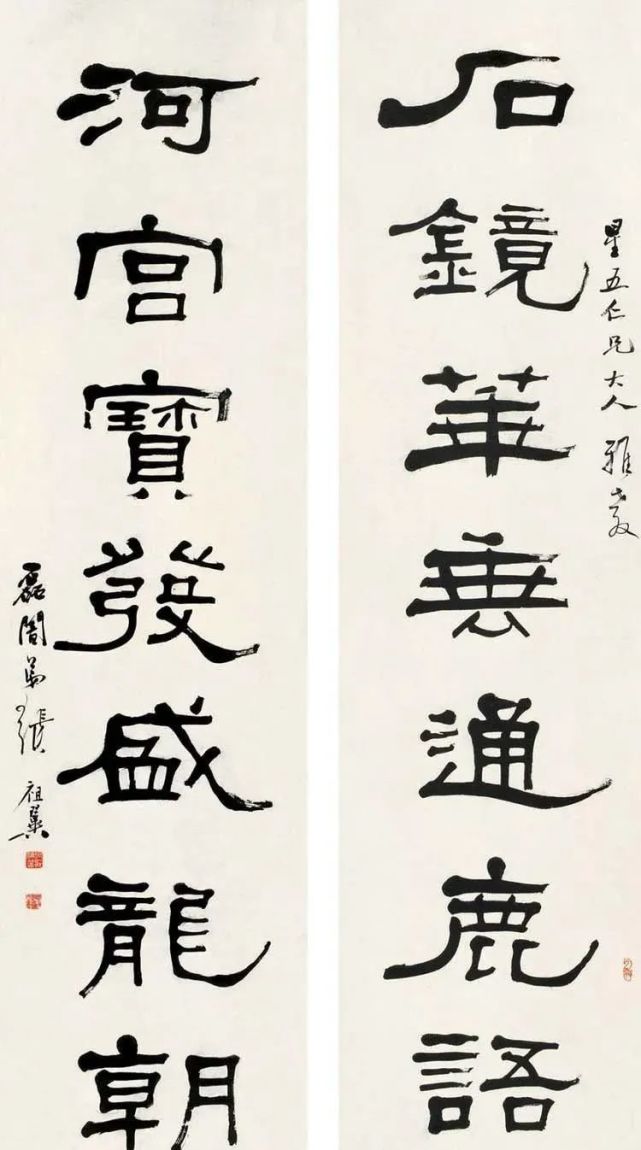 星五仁兄大人 雅教
石鏡華通鹿語
河宮寶發盛龍朝
磊闇弟張祖翼